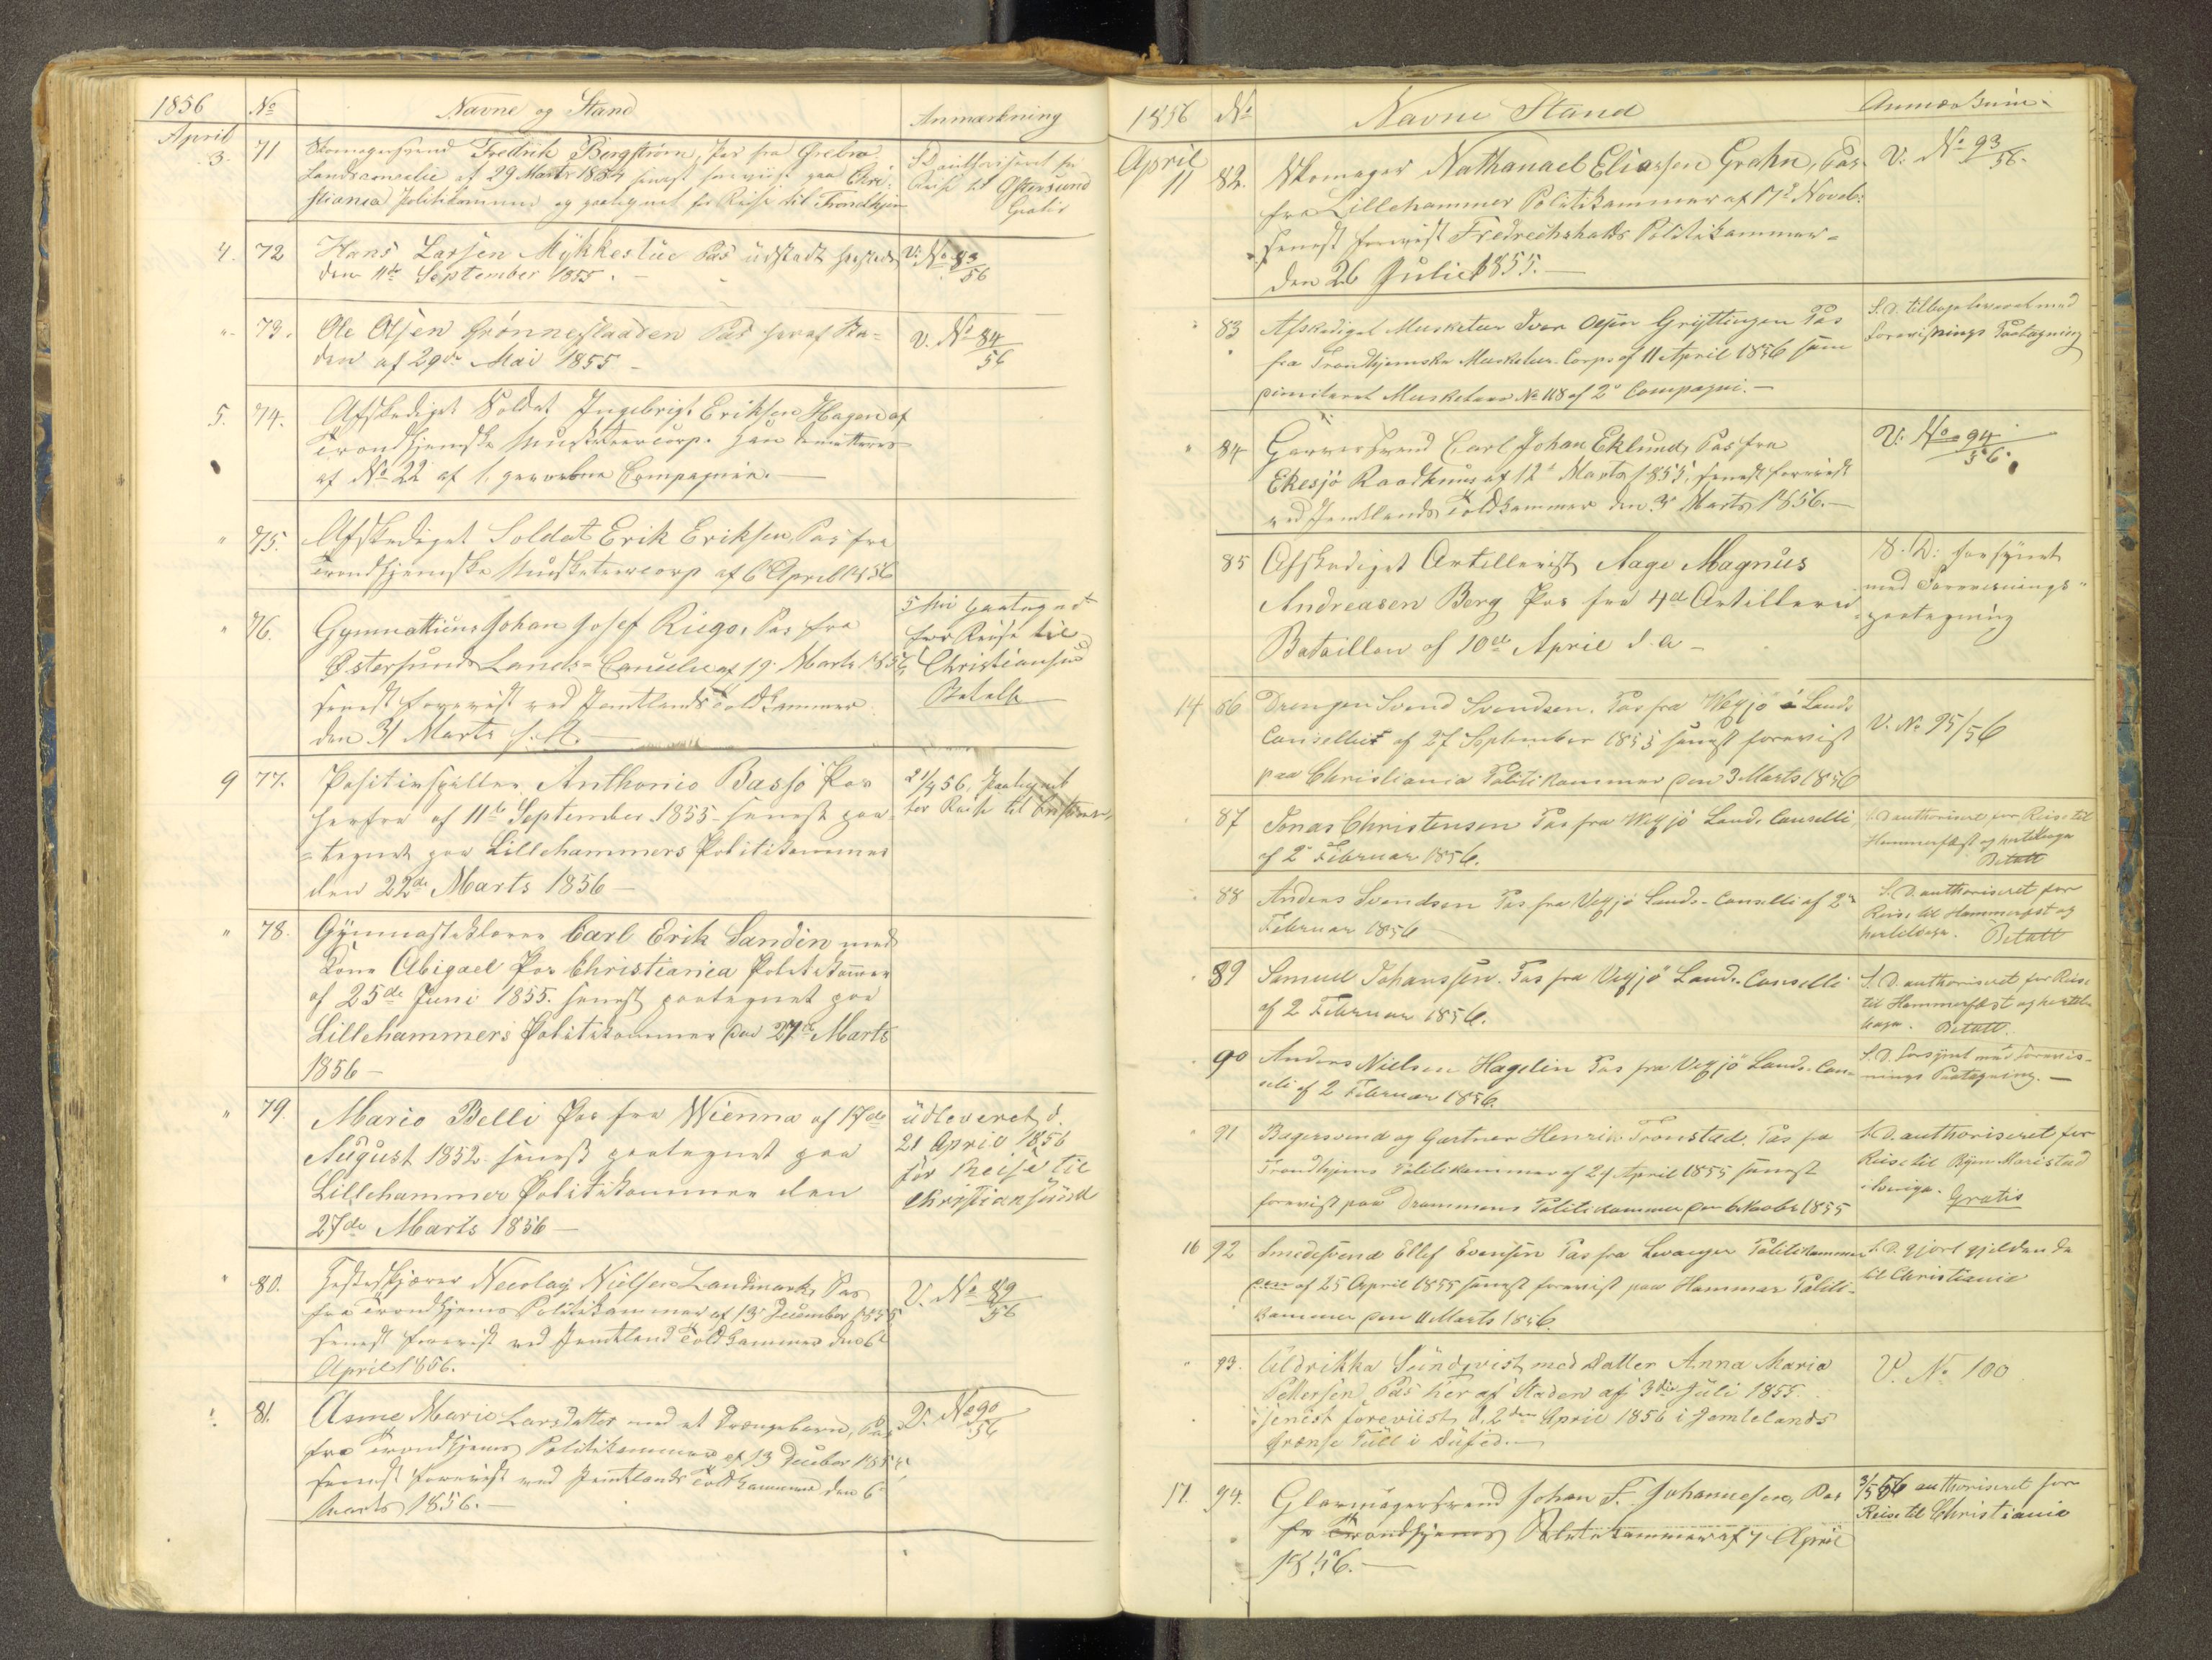 1856 No Navne og Stand Anmærkning
April
3. 71 Skomagersvend Fredrik Bergstrøm, Pas fra Ørebro
Landscancelie af 29 Marts 1854 senest forevist paa Chri-
stiania Politikammer og paategnet for Reise til Trondhjem
S. D. authoriseret for
Reise til Østersund
Gratis
4. 72 Hans Larsen Mÿkkestue Pas üdstædt hersteds
den 11te September 1855.
V. No 83/56
" 73. Ole Olsen Grønneslaaden Pas her af Sta-
den af 29de Mai 1855
V. No 84/56
5. 74. Afskediget Soldat Ingebrigt Eriksen Hagen af
Trondhjemske Musketeercorps
af No 22 af 1. gevorbne Compagnie.
" 75. Afskediget Soldat Erik Eriksen, Pas fra
Trondhjemske Musketeercorps af 6 April 1856
" 76. Gymnatiens Johan Josef Riego, Pas fra
Østersunds Lands-Cancelie af 19. Marts 1856
senest forevist ved Jemtlands Toldkammer
den 31 Marts s. A.
5 Mai paategnet
for Reise til
Christiansund
Betalt
9 77. Positivspiller Anthonio Basso Pas
herfra af 11te September 1855 senest paa-
tegnet paa Lillehammers Politikammer
den 22de Marts 1856
21/4 56, Paategnet
for Reise til Christianss.
" 78. Gÿmnastiklærer Carl Erik Sandin med
Kone Abigael Pas Christiania Politikamer
af 25de Juni 1855. senest paategnet paa
Lillehammers Politikammer den 27de Marts
1856
" 79. Mario Belli Pas fra Wienna af 17de
August 1852 senest paategnet paa
Lillehammer Politikammer den
27de Marts 1856
üdleveret d.
21 April 1856
for Reise til
Christiansünd
" 80. Necolaÿ Nielsen Landmark, Pas
fra Trondhjems Politikammer af 13 December 1855
senest forevist ved Jemtland Toldkammer den 6
April 1856.
V. No 89/56
" 81. Asme Marie Larsdatter med et Drængebarn, Pas
fra Trondhjems Politikammer af 13 December 1855
senest forevist ved Jemtlands Toldkammer den 6
Marts 1856.
V. No 90/56
1856 No Navne Stand Anmærkning
April
11 82. Skomager Nathanael Eliassen Grahn, Pas
fra Lillehammer Politikammer af 17de Noveb:
senest forevist Fredrechshalds Politikammer
den 26 Julie 1855.
V. No 93/56.
" 83 Afskediget Musketeer Iver Olsen Grÿttingen Pas
fra Trondhjemske Musketeer-Corps af 11 April 1856 som
dimiteret Musketeer No 118 af 2. Compagni.
S. D. tilbageleveret med
Forevisnings Paategning
" 84 Garversvend Carl Johan Eklund, Pas fra
Ekesjö Raadhuus af 12te Marts 1855, senest forevist
ved Jemtlands Toldkammer den 3 Marts 1856.
V. No 94/56.
85 Afskediget Artillerist Aage Magnus
Andreasen Berg Pas fra 4de Artilleri
Bataillon af 10de April d. a
S. D. forsÿnet
med Forevisnings-
paategning
14 86 Drengen Svend Svendsen. Pas fra Wexjö Lands
Canselliet af 27 September 1855 senest forevist
paa Christiania Politikammer den 3 Marts 1856
V. No 95/56
87 Jonas Christensen Pas fra Wexjö Lands Canselli
af 2 Februar 1856.
S. D authoriseret for Reise til
Hammerfest og hertilbage
Betalt
88 Anders Svendsen Pas fra Vexjö Lands-Canselli af 2en
Februar 1856
S. D. authoriseret for
Reise til Hammerfest og
hertilbage. Betalt
89 Samuel Johanssen. Pas fra Vexjö Lands-Canselli
af 2 Februar 1856.
S. D. authoriseret for Reise
til Hammerfest og hertil-
bage. Betalt.
90 Anders Nielsen Hagelin Pas fra Vexjö Lands-Can-
celi af 2 Februar 1856.
S. D. forsÿnet med Forevis-
nings Paategning.
" 91 Bagersvend og Gartner Henrik Tronstad. Pas fra
Trondhjems Politikammer af 24 April 1855 senest
forevist paa Drammens Politikammer den 6 Novbr 1855
S. D. authoriseret for
Reise til Bÿen Maristad
i Sverige. Gratis
16 92 Smedesvend Ellef Evensen Pas fra Levanger Politikammer
af 25 April 1855 senest forevist paa Hammar Politi-
kammer den 11 Marts 1856.
S. D. gjort gjeldende
til Christiania
" 93. Uldrikka Sündqvist med Datter Anna Maria
Pettersen, Pas her af Staden af 3die Jüli 1855.
senest foreviist, d. 2den April 1856 i Jemtelands
Grænse Tüll i Düfed.
V. No 100
17. 94. Glarmagersvend Johan F. Johannesen, Pas
fra Trondhjems Politikammer af 7 April
1856.
3/5 56 authoriseret for
Reise til Christiania